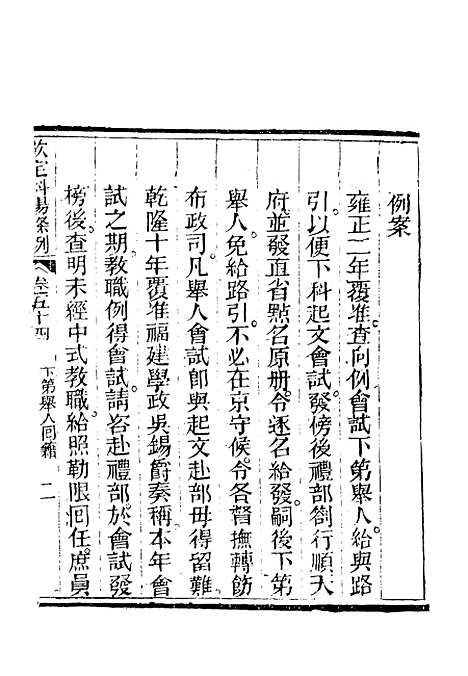 例案
雍正二年覆准查向例會試下第舉人給與路
引以便下科起文會試發傍後禮部劄行順天
府並發直省㸃名原册令逐名給發嗣後下第
舉人免給路引不必在京守候令各督撫轉飭
布政司凡舉人會試即與起文赴部毋得留難
乾隆十年覆准福建學政吳錫爵奏稱本年會
試之期教職例得會試請咨赴禮部於會試發
榜後查明未經中式教職給照勒限囘任庶員
欽定科場條例 卷五十四 下第舉人囘籍 二